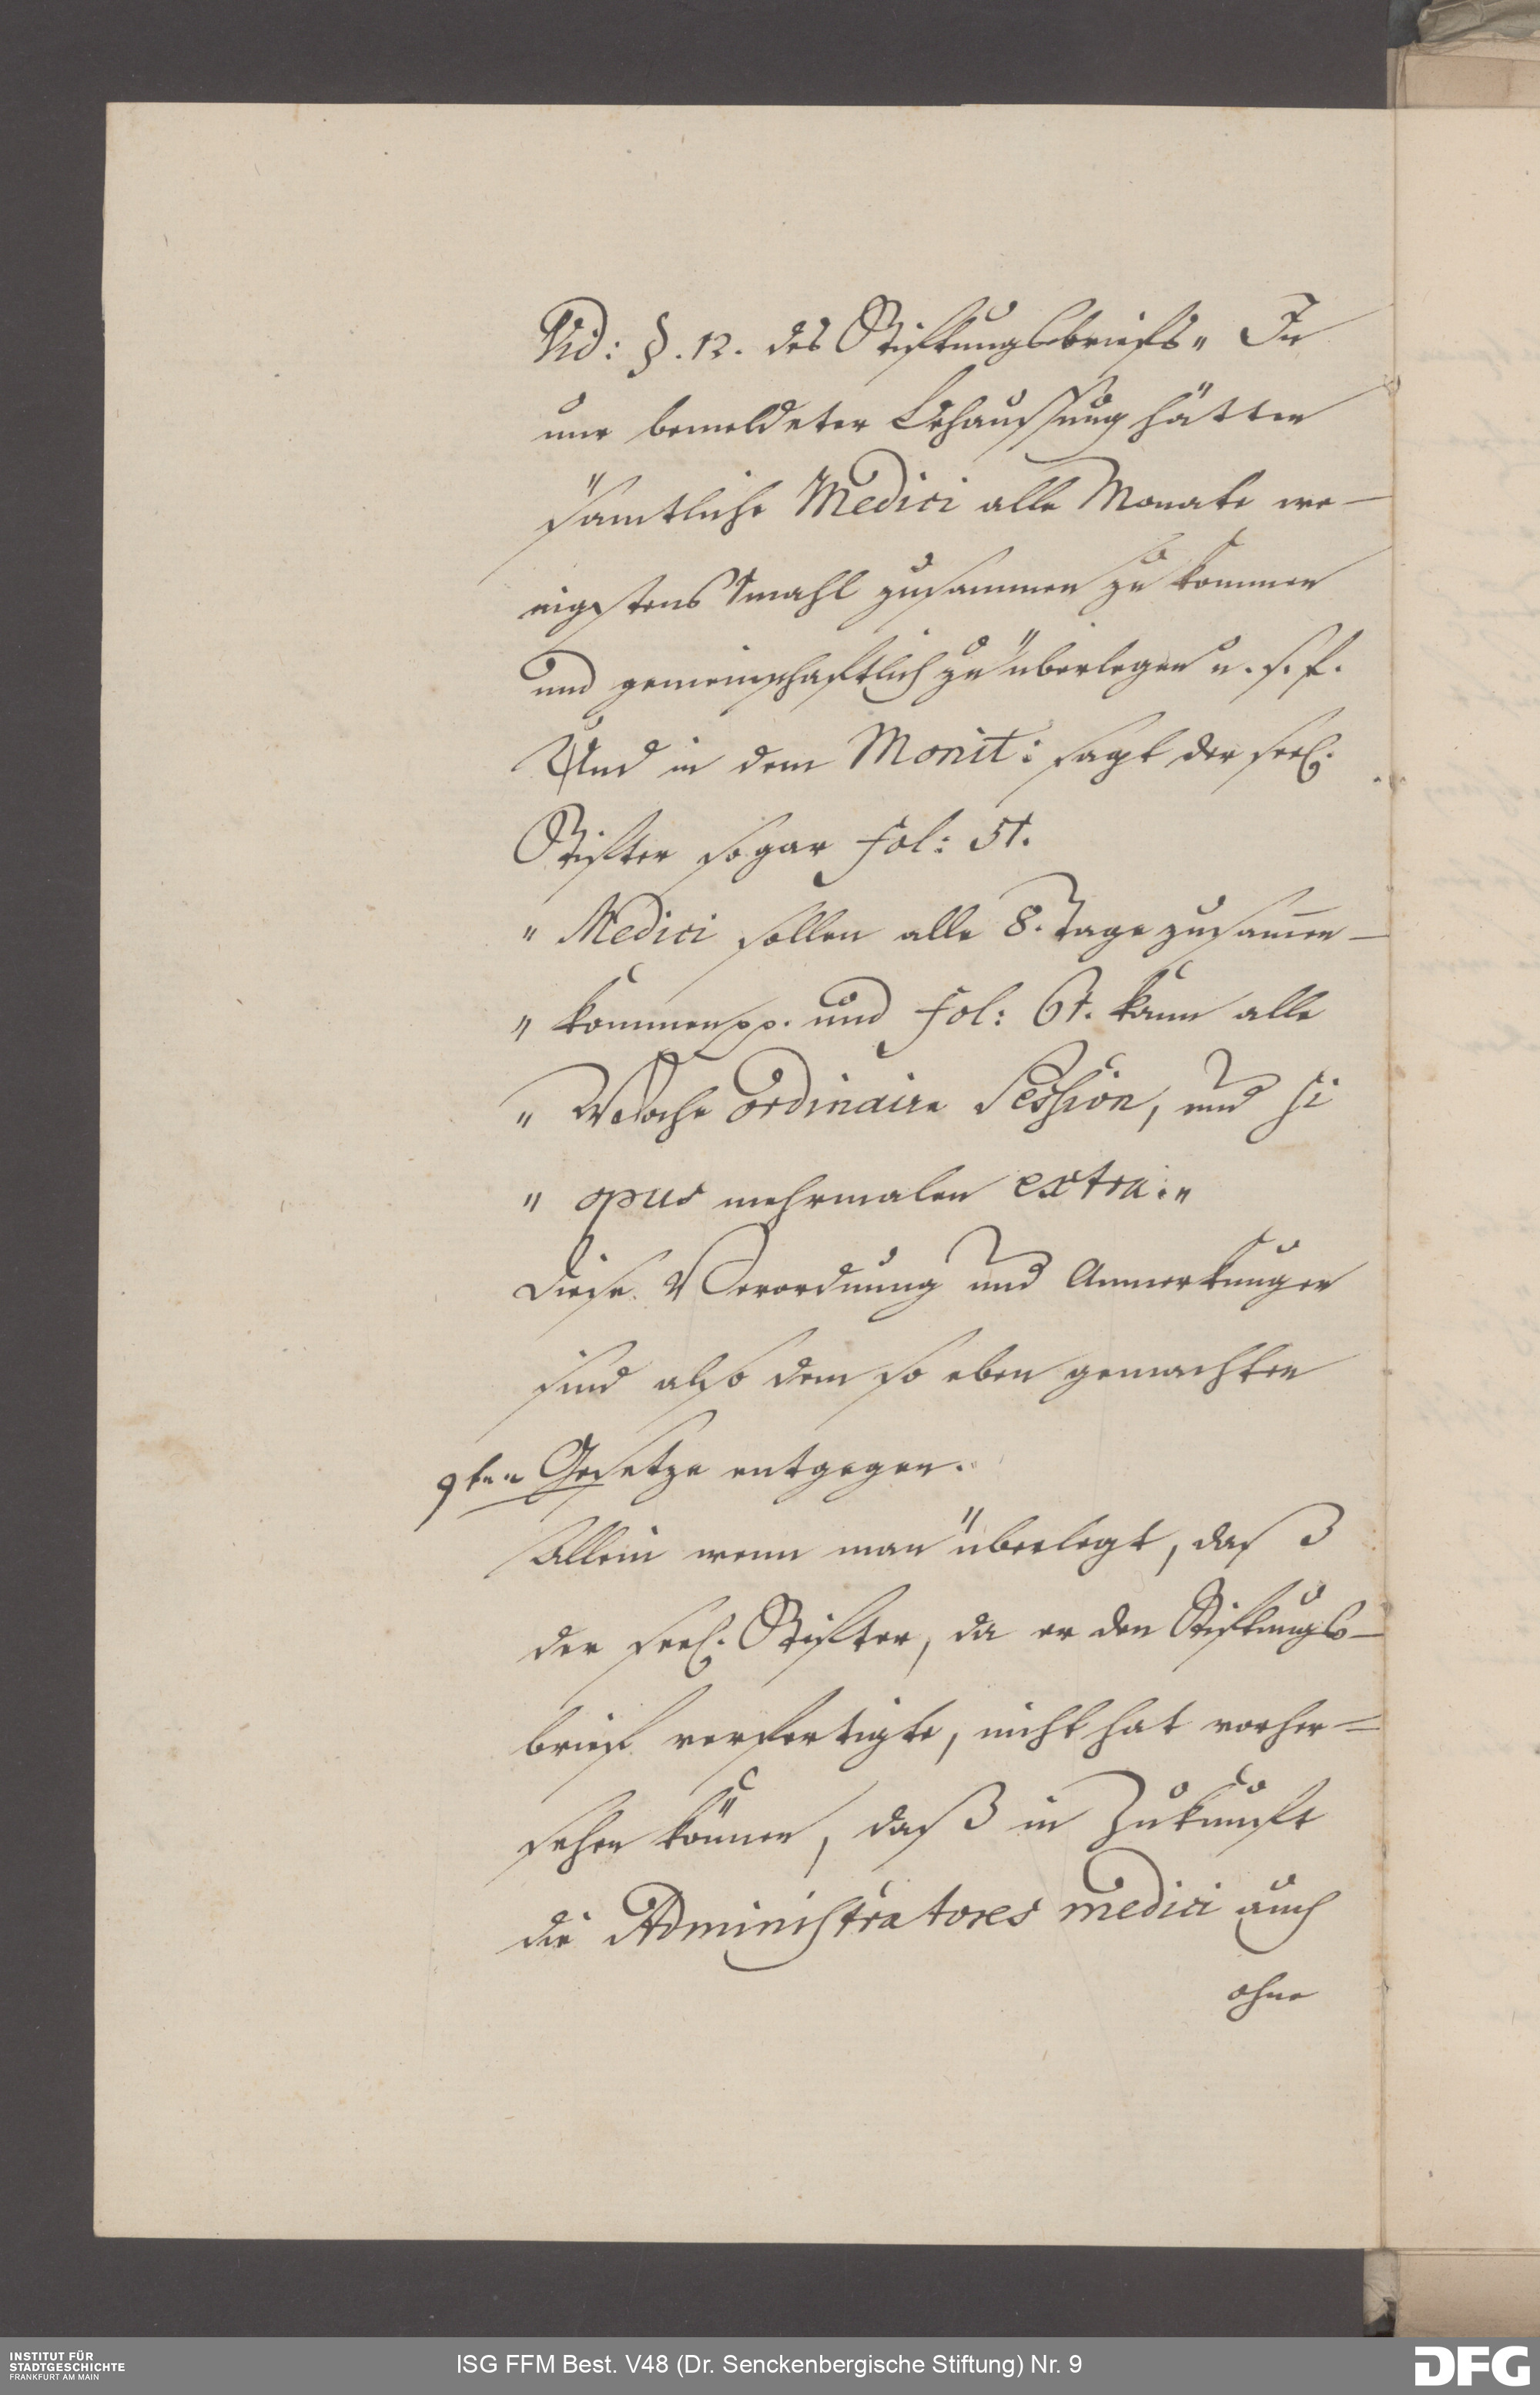 Vid: §. 12. des Stiftungsbriefs„ In
nur bemeldeter Behaussung hätten
sämtliche Medici alle Monate we-
nigstens 1mahl zusammen zu kommen
und gemeinschaftlich zu überlegen u. s. f.
Und in dem Monit: sagt der seel.
Stifter sogar fol: 51.
„ Medici sollen alle 8. Tage zusam̅en-
„ kommen pp. und fol: 61. kann alle
„ Woche ordinaire Session, und si
„ opus mehrmalen extra.„
Diese Verordnung und Anmerkungen
sind also dem so eben gemachten
9ten Gesetze entgegen.
Allein wenn man überlegt, daß
der seel. Stifter, da er den Stiftungs-
brief verfertigte, nicht hat vorher=
sehen können, daß in Zukunft
die Administratores medici auch
ohne
INSTITUT FÜR
STADTGESCHICHTE
FRANKFURT AM MAIN
ISG FFM Best. V48 (Dr. Senckenbergische Stiftung) Nr. 9
DFG